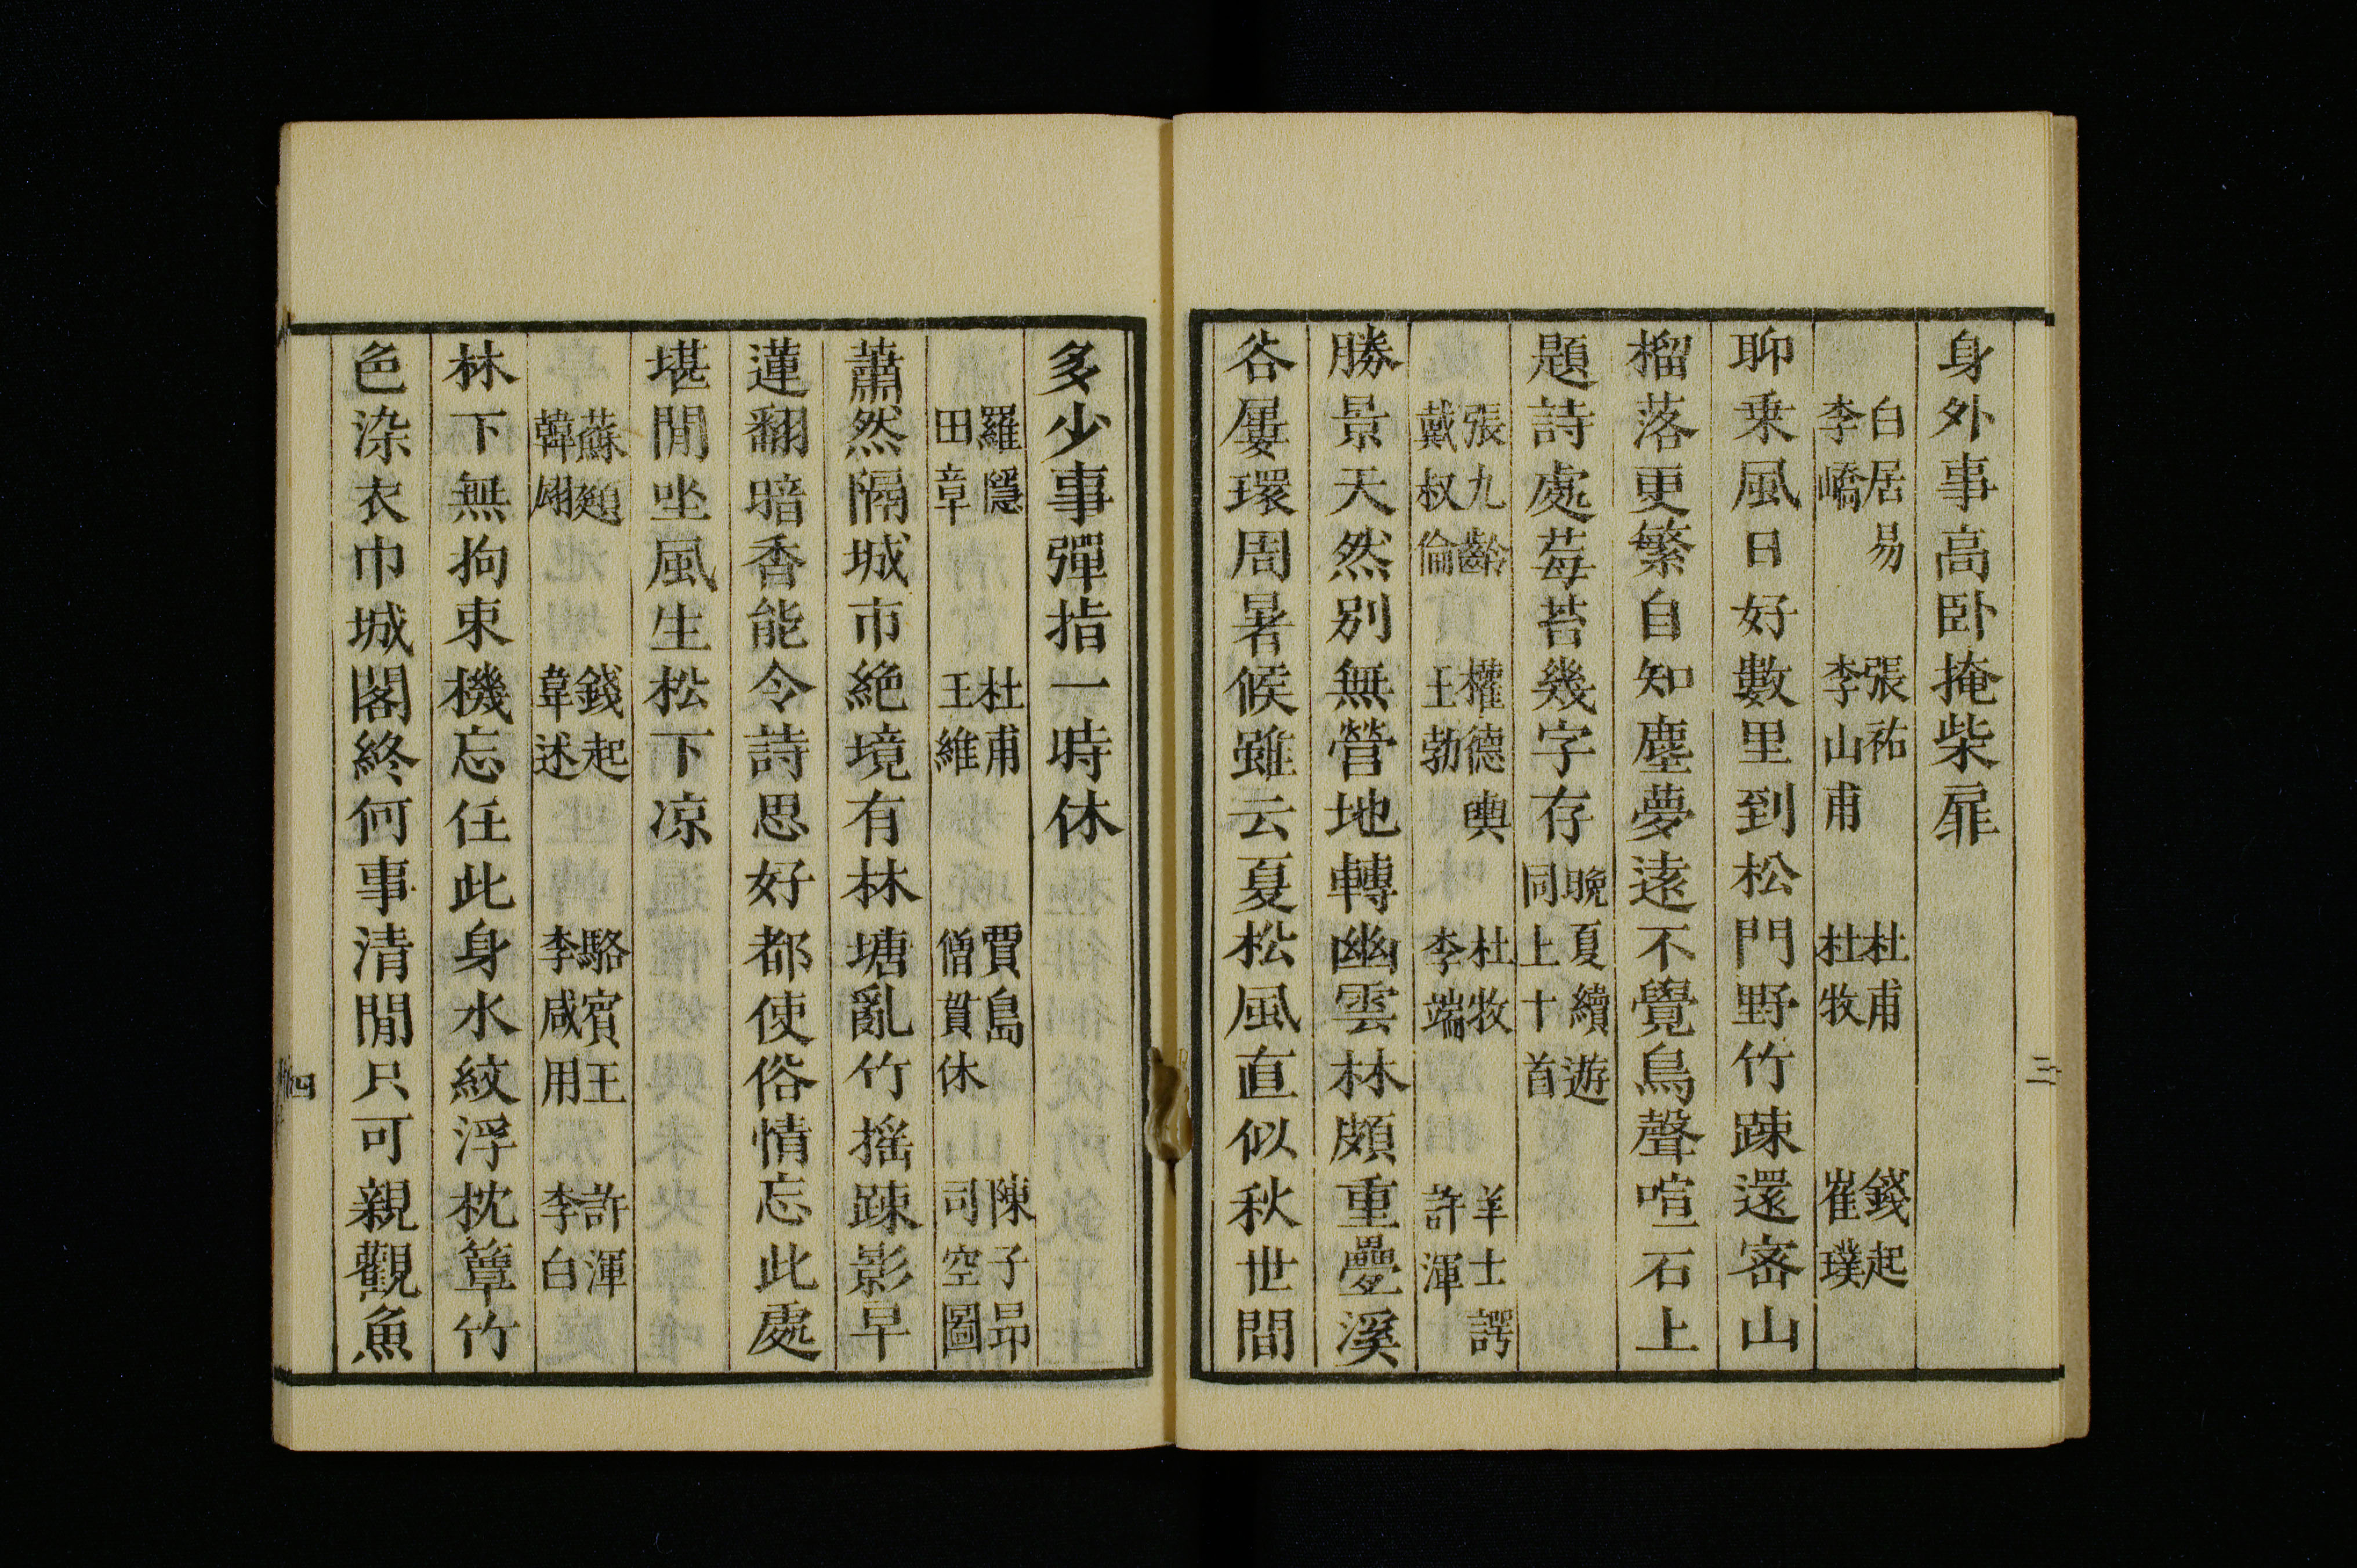 身外事高卧掩柴扉
白居易　張祐　杜甫　錢起
李嶠　李山甫　杜牧　崔璞
聊乗風日好數里到松門野竹踈還宻山
榴落更繁自知塵夢逺不覺鳥聲喧石上
題詩處莓苔幾字存晩夏續遊
同上十首
張九齡　權德輿　杜牧　羊士諤
戴叔倫　王勃　李端　許渾
勝景天然别無營地轉幽雲林頗重疊溪
谷屢環周暑候雖云夏松風直似秋世間
三
多少事彈指一時休
羅隱　杜甫　賈島　陳子昻
田章　王維　僧貫休　司空圖
蕭然隔城市絶境有林塘亂竹揺踈影早
蓮翻暗香能令詩思好都使俗情忘此處
堪閒坐風生松下凉
蘇頲　錢起　駱賔王　許渾
韓翃　韋述　李咸用　李白
林下無拘束機忘任此身水紋浮枕簟竹
色染衣巾城閣終何事清閒只可親觀魚
四